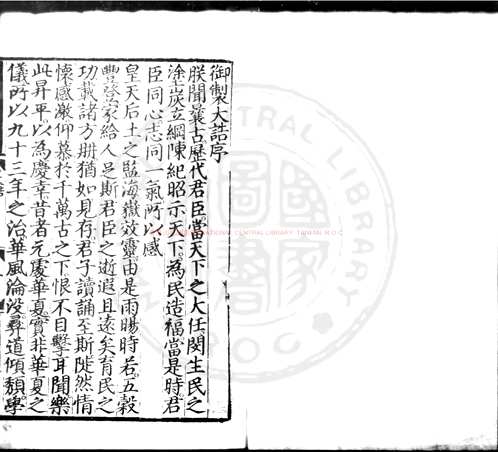 御製大誥序
朕聞曩古歷代君臣當天下之大任閔生民之
塗炭立綱陳紀昭示天下為民造福當是時君
臣同心志同一氣所以感
皇天后土之監海嶽效靈由是雨暘時若五穀
豐登家給人足斯君臣之逝遐且遠矣育民之
功載諸方冊猶如見存君子讀誦至斯陡然情
懷感激仰慕於千萬古之下恨不目擊耳聞樂
此昇平以為慶幸昔者元處華夏實非華夏之
儀所以九十三年之治華風淪沒彝道傾頹學